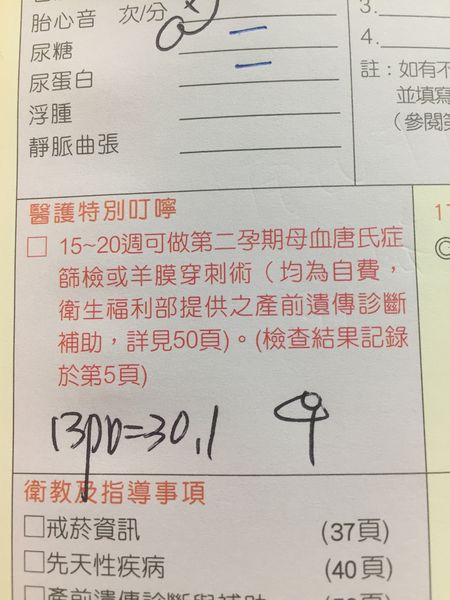 胎心音 次/分
3.
尿糖 —
4.
尿蛋白 —
註：如有不
浮腫
並填寫
（參閱第
靜脈曲張
醫護特別叮嚀
□ 15~20週可做第二孕期母血唐氏症
篩檢或羊膜穿刺術（均為自費，
衛生福利部提供之產前遺傳診斷
補助，詳見50頁)。(檢查結果記錄
於第5頁)
17
BPD=30.1 ♀
衛教及指導事項
□戒菸資訊 (37頁)
□先天性疾病 (40頁)
□產前遺傳診斷與補助